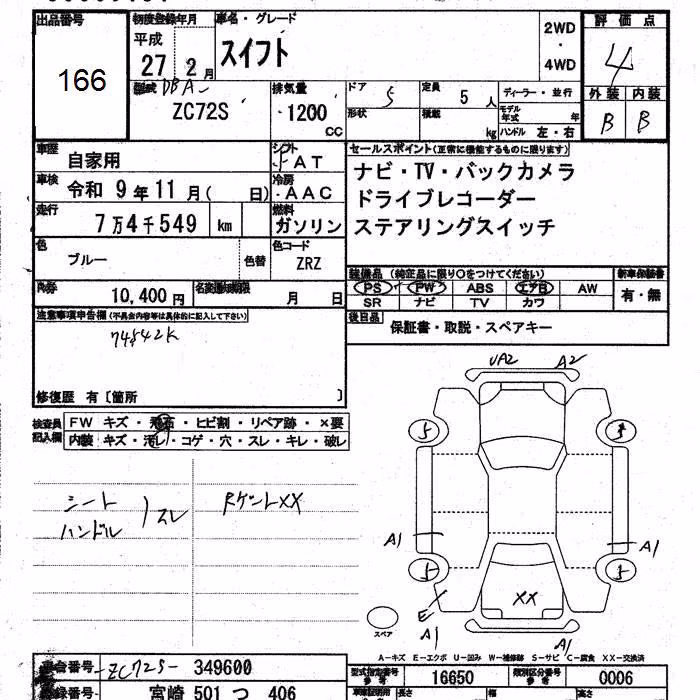 出品番号
166
初度登録年月
平成
27 2月
車名・グレード
スイフト
2WD
・
4WD
評価点
4
外装 内装
B B
型式 DBA-
ZC72S
排気量
1200
CC
ドア 5
定員 5人
ディーラー・並行
形状
積載 kg
モデル年式 年
ハンドル 左・右
車歴 自家用
シフト
AT
車検 令和 9年11月( 日)
冷房
AAC
走行 7万4千549 km
燃料
ガソリン
色 ブルー
色替
色コード
ZRZ
10,400円
名変通知期限
月 日
セールスポイント(正常に機能するものに限ります)
ナビ・TV・バックカメラ
ドライブレコーダー
ステアリングスイッチ
装備品(純正品に限り○をつけてください)
新車保証書
PS PW ABS エアB AW
SR ナビ TV カワ
有・無
後日品 保証書・取説・スペアキー
注意事項申告欄(不具合内容等は具体的に記入して下さい)
74542K
修復歴 有〔箇所 〕
検査員
記入欄
FW キズ・飛石・ヒビ割・リペア跡・×要
内装 キズ・汚レ・コゲ・穴・スレ・キレ・破レ
シート
ハンドル
スレ
RゲートXX
A2
5
5
5
A1
A1
XX
E
A1
A1
スペア
A-キズ E-エクボ U-凹み W-補修跡 S-サビ C-腐食 XX-交換済
車台番号 ZC72S- 349600
型式指定番号
16650
類別区分番号
0006
登録番号 宮崎 501 つ 406
長さ
幅
高さ